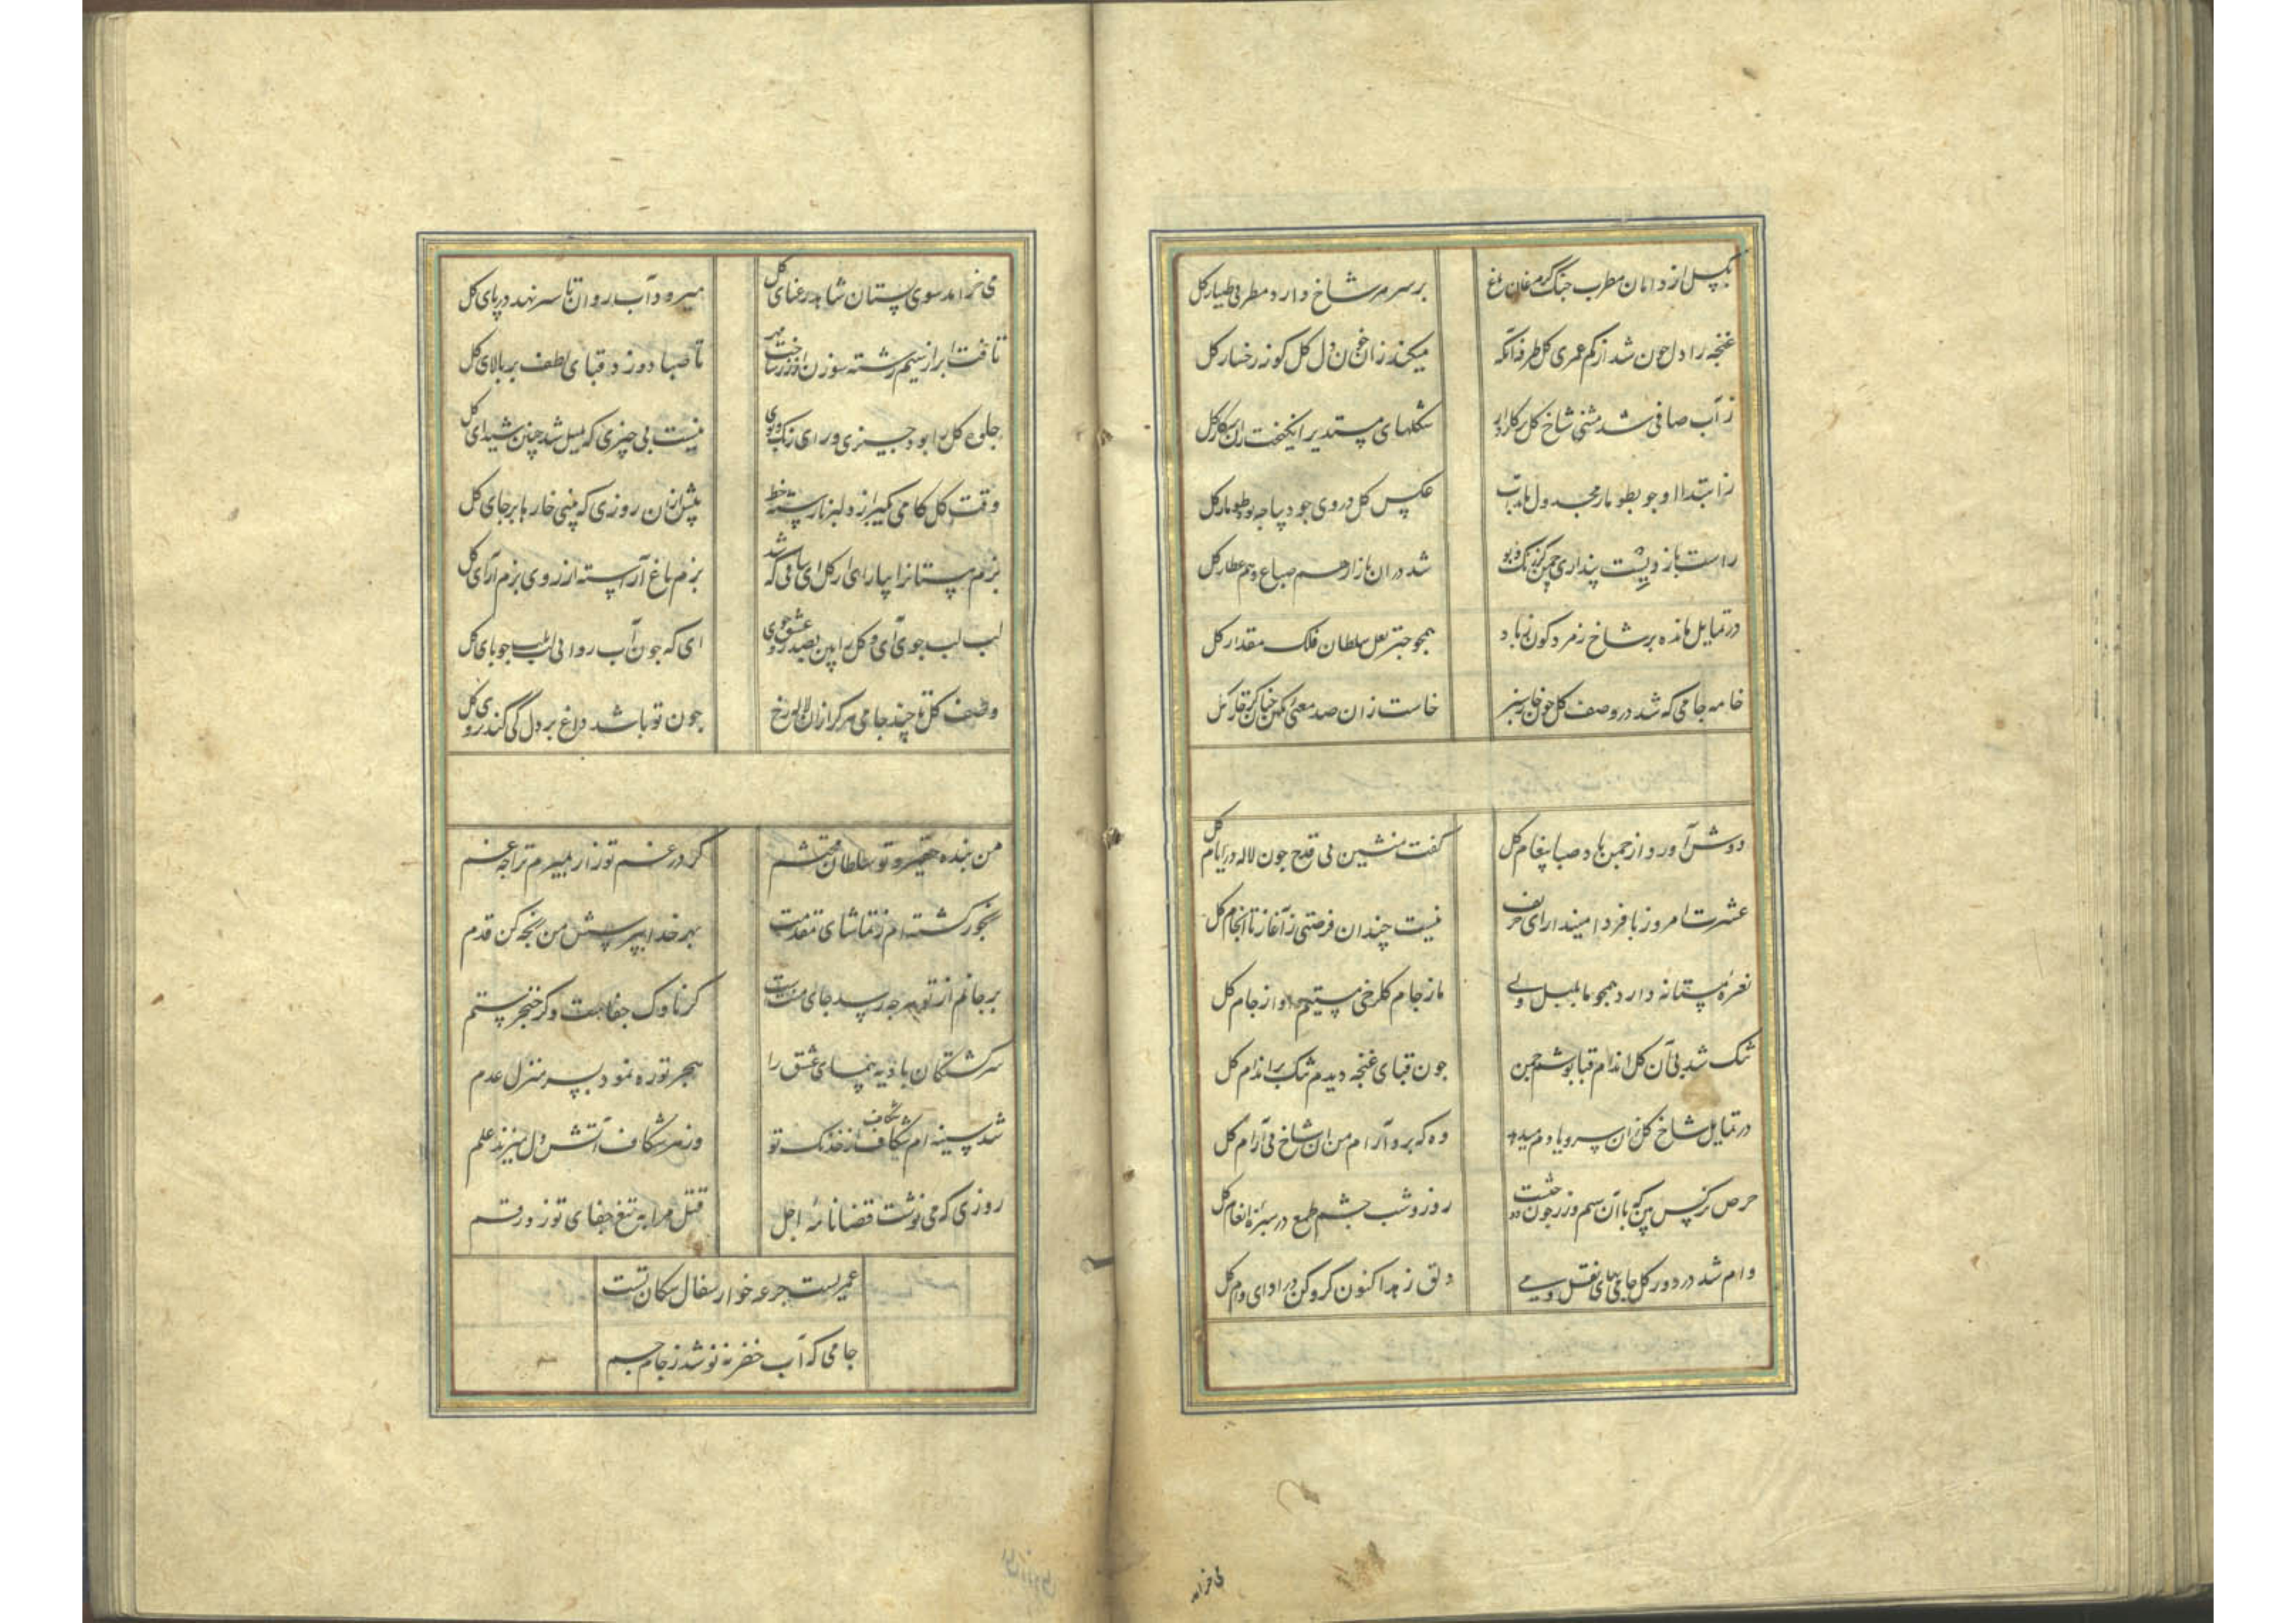 بگسل از دامان مطرب چنگ کز مرغان باغ
بر سر هر شاخ دارد مطربی طیار گل
غنچه را دل خون شد از کم عمری گل طرفه آنکه
میکند زان خون دل گلگونه رخسار گل
ز آب صافی شد مثنی شاخ گل
شکلهای مستدیر انگیخت زان پرگار گل
ز ابتدا او جو بطومار مجدول ماندست
عکس گل در روی جو دیباجه طومار گل
راست بازاریست پنداری چمن کز رنگ و بو
شد دران بازار هم صباغ و هم عطار گل
در تمایل مانده بر شاخ زمردگون ز باد
همچو چتر لعل سلطان فلک مقدار گل
خامه جامی که شد در وصف گل چون خار سبز
خاست زان صد معنی رنگین چنان کز خار گل
دوش آورد از چمن باد صبا پیغام گل
گفت منشین بی قدح چون لاله در ایام گل
عشرت امروز با فردا میندازای حریف
نیست چندان فرصتی ز آغاز تا انجام گل
نعره مستانه دارد همچو ما بلبل ولی
ما ز جام گلرخی مستیم و او از جام گل
تنگ شد بی آن گل اندام قباپوشم چمن
چون قبای غنچه دیدم تنگ بر اندام گل
در تمایل شاخ گل زان سرو یادم میدهد
وه که برد آرام من ان شاخ بی آرام گل
حرص نرگس بین که با آن سیم و زر چون دوختست
روز و شب چشم طمع در سبزه انعام گل
وام شد در دور گل جامی بهای نقل و می
دلق زهد اکنون گرو کن در ادای وام گل
می خرامد
می خرامد سوی بستان شاهد رعنای گل
میرود آب روان تا سر نهد در پای گل
تافت ابر از سیم رشته سوزن از زر ساخت مهر
تا صبا دوزد قبای لطف بر بالای گل
جلوه گل را بود چیزی ورای رنگ و بوی
نیست بی چیزی که بلبل شد چنین شیدای گل
وقت گل کامی بگیر از دلبر نارسته خط
پیش ازان روزی که بینی خارها بر جای گل
بزم مستانرا بیارای از گل ای ساقی که شد
بزم باغ آراسته از روی بزم آرای گل
لب لب جوی آی و گل را بین بصد عشوه بروی
ای که چون آب روانی لب بلب جویای گل
وصف گل تا چند جامی مرگرا زان لاله رخ
چون تو باشد داغ بر دل کی کند پروای گل
من بنده حقیرو تو سلطان محتشم
گر در غم تو زار بمیرم ترا چه غم
رنجور گشته ام ز تماشای مقدمت
بهر خدا بپرسش من رنجه کن قدم
بر جانم از تو هرچه رسد جای منت است
گر ناوک جفاست و گر خنجر ستم
سرگشتگان بادیه پیمای عشق را
هجر تو ره نمود بسر منزل عدم
شد سینه ام شکاف شکاف از خدنگ تو
وز هر شکاف آتش دل میزند علم
روزی که می نوشت قضا نامه اجل
قتل مرا به تیغ جفای تو زد رقم
عمریست جرعه خوار سفال سگان تست
جامی که آب خضر ننوشد ز جام جم